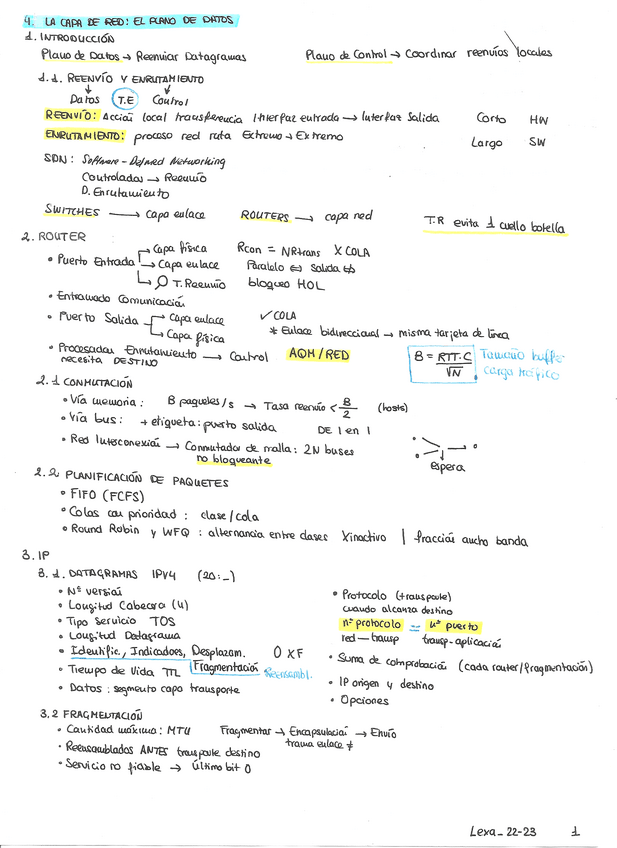 4. LA CAPA DE RED: EL PLANO DE DATOS
1. INTRODUCCIÓN
Plano de Datos → Reenviar Datagramas   Plano de Control → Coordinar reenvíos locales
1.1. REENVÍO Y ENRUTAMIENTO
Datos T.E Control
REENVÍO: Acción local transferencia Interfaz entrada → Interfaz Salida   Corto HW
ENRUTAMIENTO: proceso red ruta Extremo → Extremo   Largo SW
SDN: Software-Defined Networking
Controlador → Reenvío
D. Enrutamiento
SWITCHES → capa enlace   ROUTERS → capa red   T.R evita 1 cuello botella
2. ROUTER
• Puerto Entrada → Capa física   Rcon = NRtrans X COLA
→ Capa enlace   Paralelo ⇔ Salida ⇎
→ T. Reenvío   bloqueo HOL
• Entramado Comunicación
• Puerto Salida → Capa enlace   ✓ COLA
→ Capa física   * Enlace bidireccional → misma tarjeta de línea
• Procesador Enrutamiento → Control   AQM/RED   B = RTT·C / √N   Tamaño buffer
necesita DESTINO   carga tráfico
2.1 CONMUTACIÓN
• Vía memoria: B paquetes/s → Tasa reenvío < B/2 (hosts)
• Vía bus: + etiqueta: puerto salida   DE 1 en 1
• Red Interconexión → Conmutador de malla: 2N buses
no bloqueante   espera
2.2 PLANIFICACIÓN DE PAQUETES
• FIFO (FCFS)
• Colas con prioridad: clase/cola
• Round Robin y WFQ: alternancia entre clases X inactivo | fracción ancho banda
3. IP
3.1. DATAGRAMAS IPV4 (20:_)
• Nº versión
• Longitud Cabecera (4)
• Tipo Servicio TOS
• Longitud Datagrama
• Identific., Indicadores, Desplazam. 0 X F
Fragmentación Reensambl.
• Tiempo de Vida TTL
• Datos: segmento capa transporte
• Protocolo (transporte)
cuando alcanza destino
nº protocolo = nº puerto
red - transp   transp - aplicación
• Suma de comprobación (cada router/fragmentación)
• IP origen y destino
• Opciones
3.2 FRAGMENTACIÓN
• Cantidad máxima: MTU   Fragmentar → Encapsulación → Envío
trama enlace ≠
• Reensamblados ANTES transporte destino
• Servicio no fiable → Último bit 0
Lexa_22-23   1